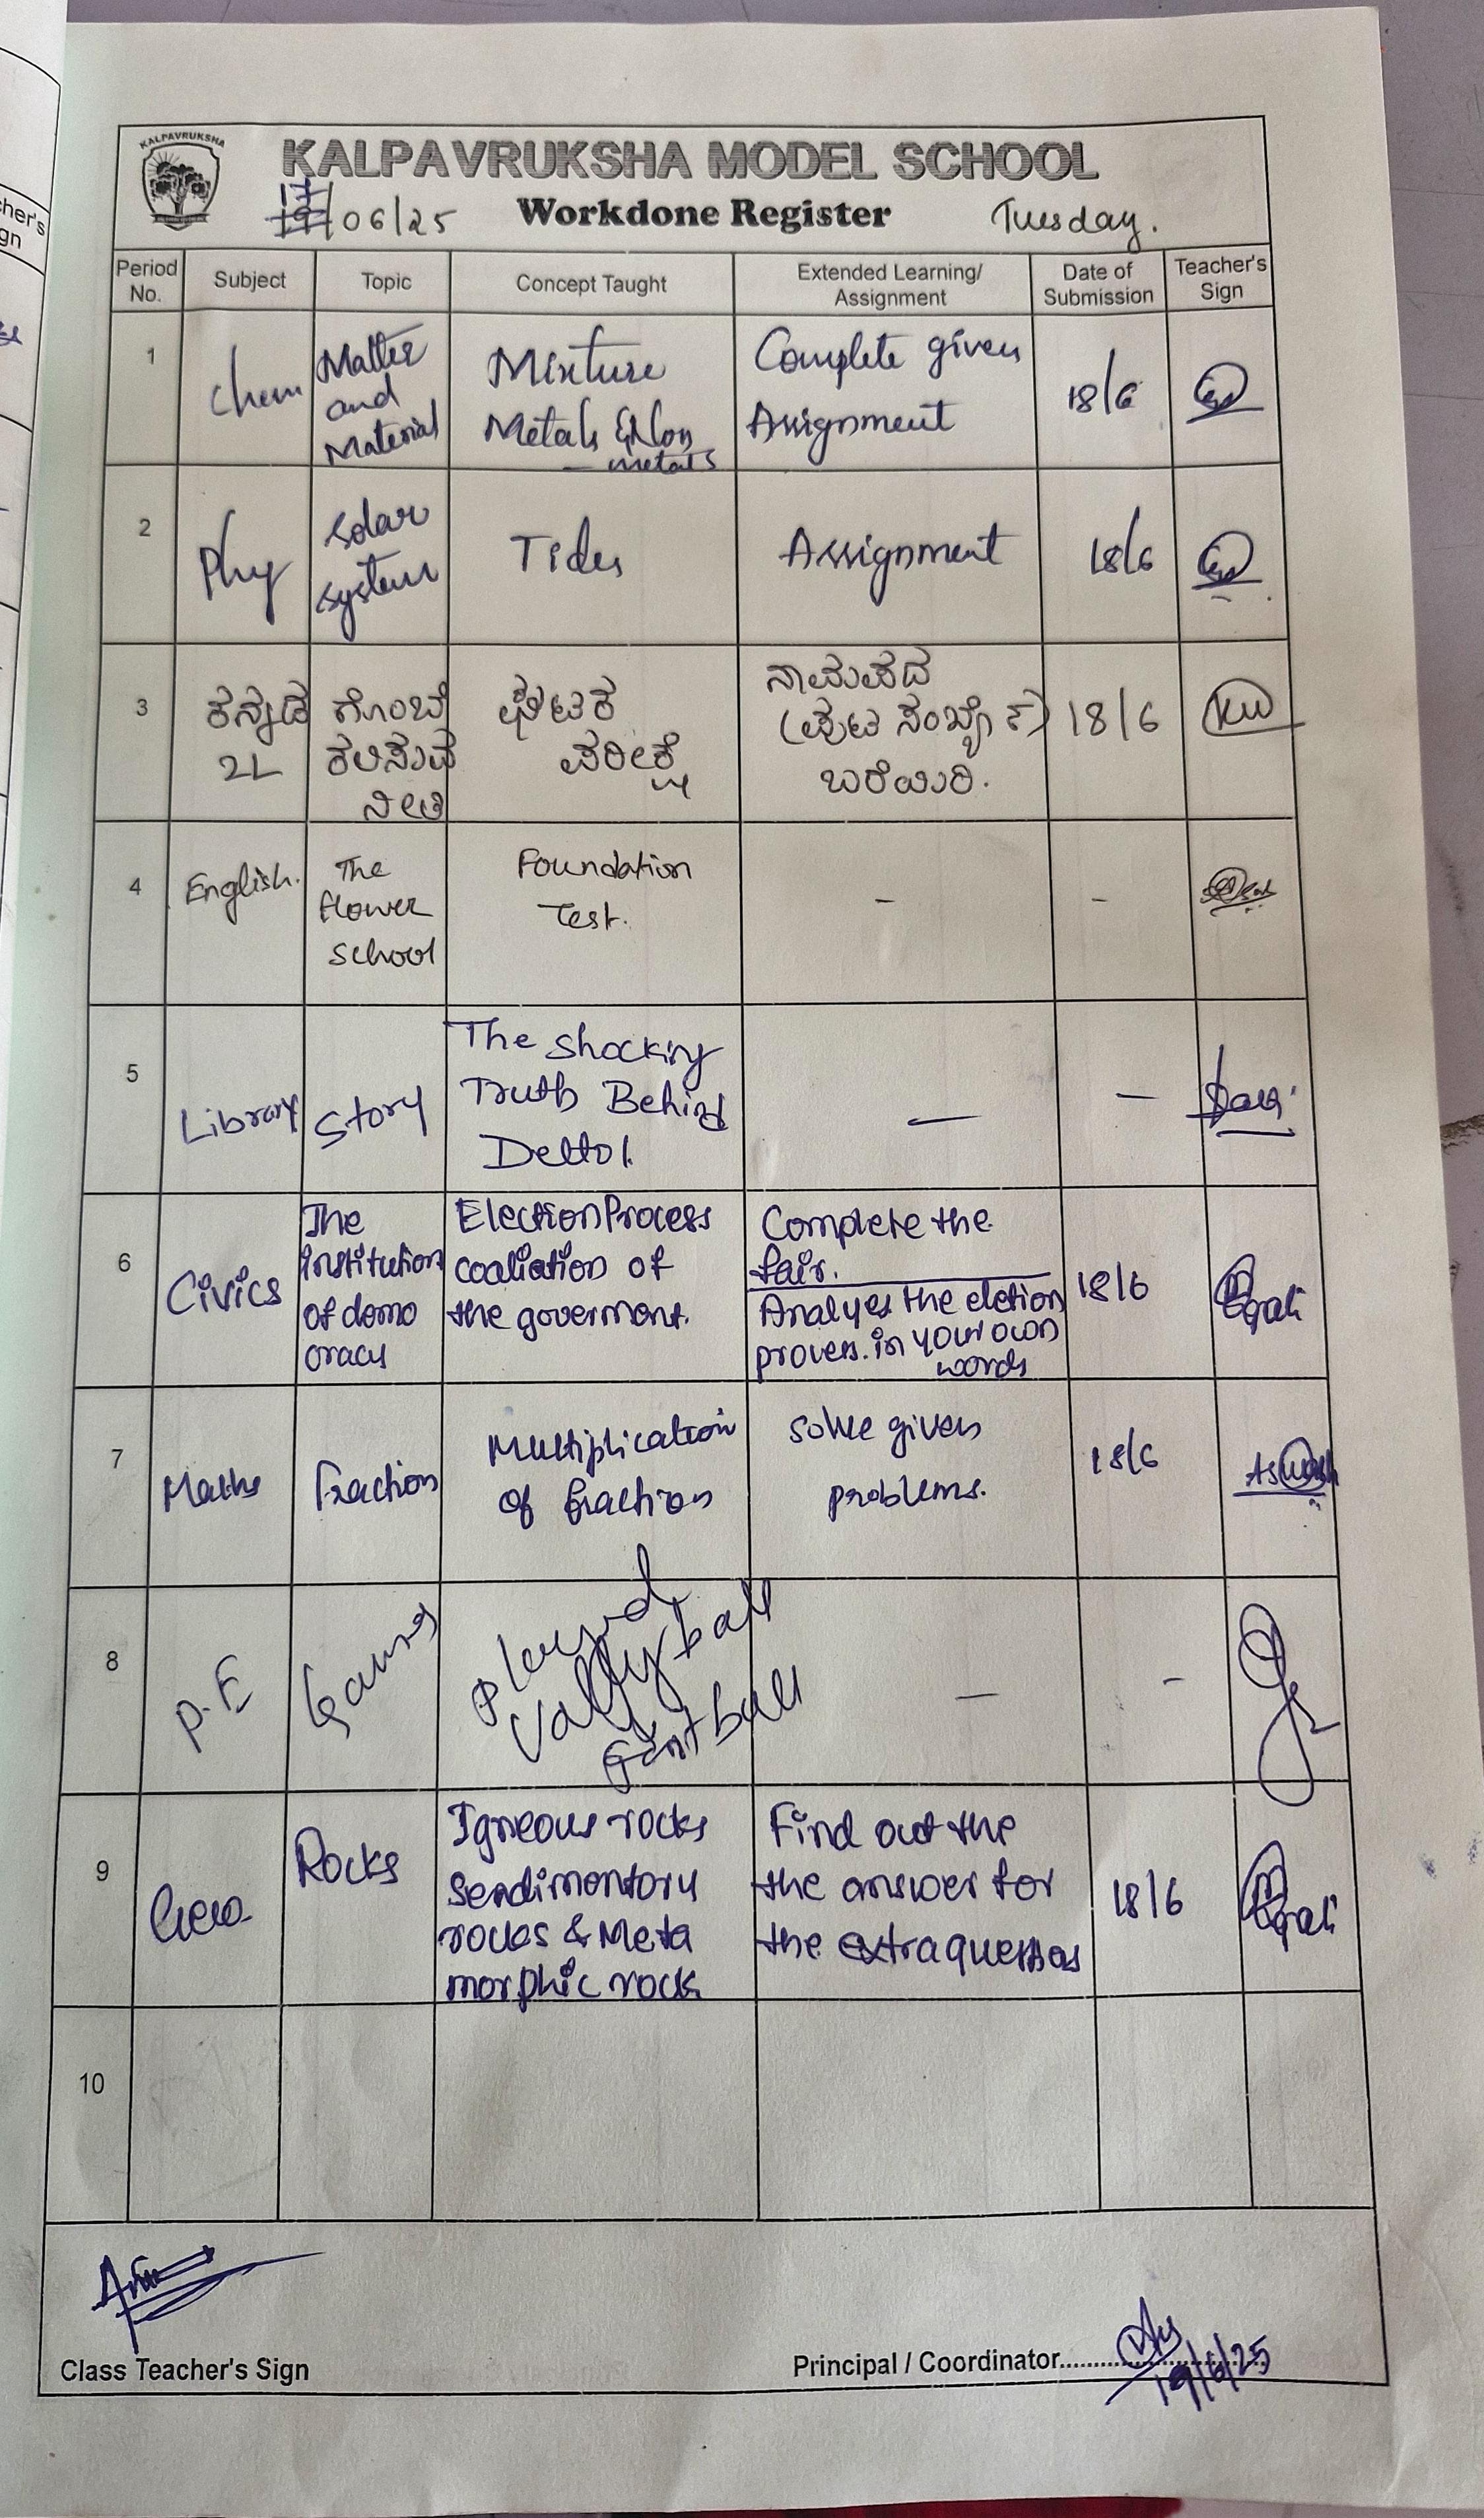 KALPAVRUKSHA
KALPAVRUKSHA MODEL SCHOOL
17/06/25 Workdone Register Tuesday.
Period No. Subject Topic Concept Taught Extended Learning/ Assignment Date of Submission Teacher's Sign
1
Chem
Matter
and
Material
Mixture
Metals & Non
- metals
Complete given
Assignment
18/6
2
Phy
Solar
system
Tides
Assignment
18/6
3
ಕನ್ನಡ
2L
ಗೊಂಬೆ
ಕಲಿಸುವ
ನೀತಿ
ಘಟಕ
ಪರೀಕ್ಷೆ
ನಾಮಪದ
(ಪುಟ ಸಂಖ್ಯೆ ೯)
ಬರೆಯಿರಿ.
18/6
4
English.
The
flower
School
Foundation
Test.
-
-
5
Library
Story
The shocking
Truth Behind
Dettol.
—
—
6
Civics
The
institution
of demo
cracy
Election Process
coaliation of
the goverment.
Complete the
fair.
Analyes the eletion
provers. in your own
words
18/6
7
Maths
Fraction
Multiplication
of fraction
Solve given
problems.
18/6
8
P.E
Games
Played
Vallyball
&
—
-
9
Geo.
Rocks
Igneous rocks
Sendimentory
rocks & Meta
morphic rock
Find out the
the answer for
the extra questios
18/6
10
Class Teacher's Sign
Principal / Coordinator
19/6/25